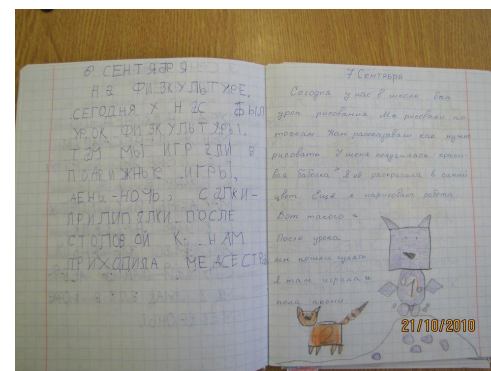 6 СЕНТЯБРЯ
НА ФИЗКУЛЬТУРЕ,
СЕГОДНЯ У НАС БЫЛ
УРОК ФИЗКУЛЬТУРЫ.
ТАМ МЫ ИГРАЛИ В
ПОДВИЖНЫЕ ИГРЫ,
ДЕНЬ-НОЧЬ, САЛКИ-
ПРИЛИПАЛКИ. ПОСЛЕ
СТОЛОВОЙ К НАМ
ПРИХОДИЛА МЕДСЕСТРА
7 Сентября
Сегодня у нас в школе был
урок рисования. Мы рисовали по
точкам. Нам рассказывали как нужно
рисовать. У меня получилась
бабочка. Я её раскрасила в синий
цвет. Ещё я нарисовала робота.
Вот такого
После урока
мы пошли гулять
Я там играла в
21/10/2010